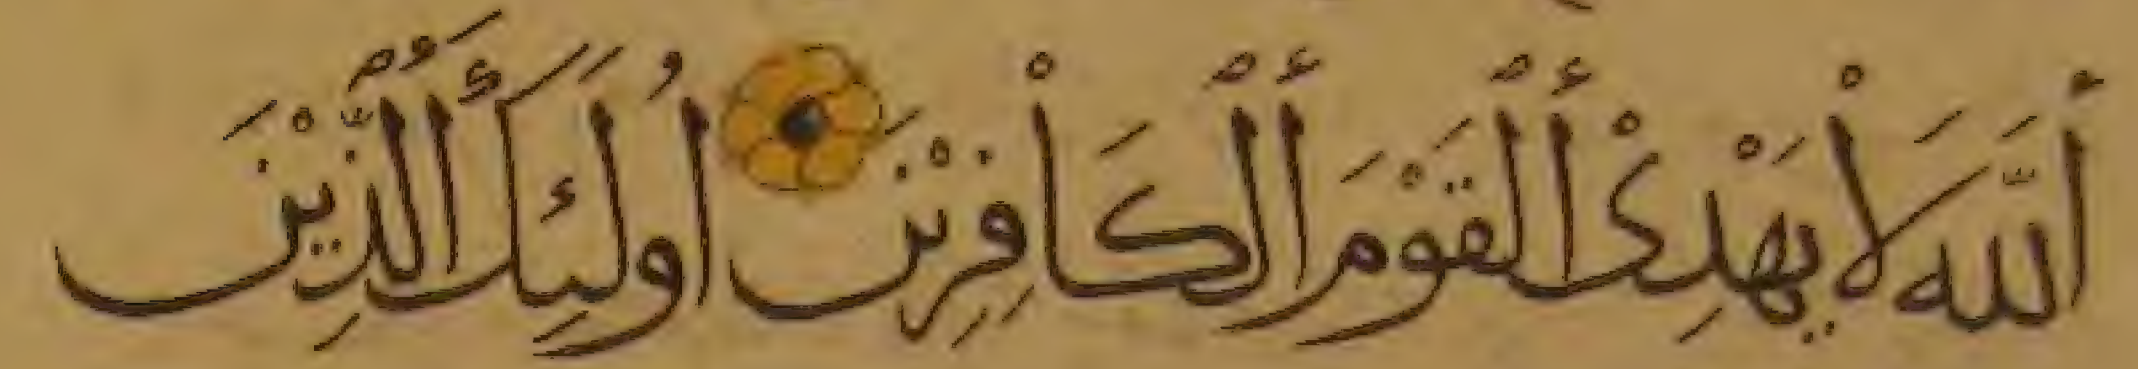 ٱللَّهَ لَاْ يَهْدِىْ ٱلْقَوْمَ ٱلْكَاْفِرِيْنَ اُولَٰئِكَ ٱلَّذِيْنَ